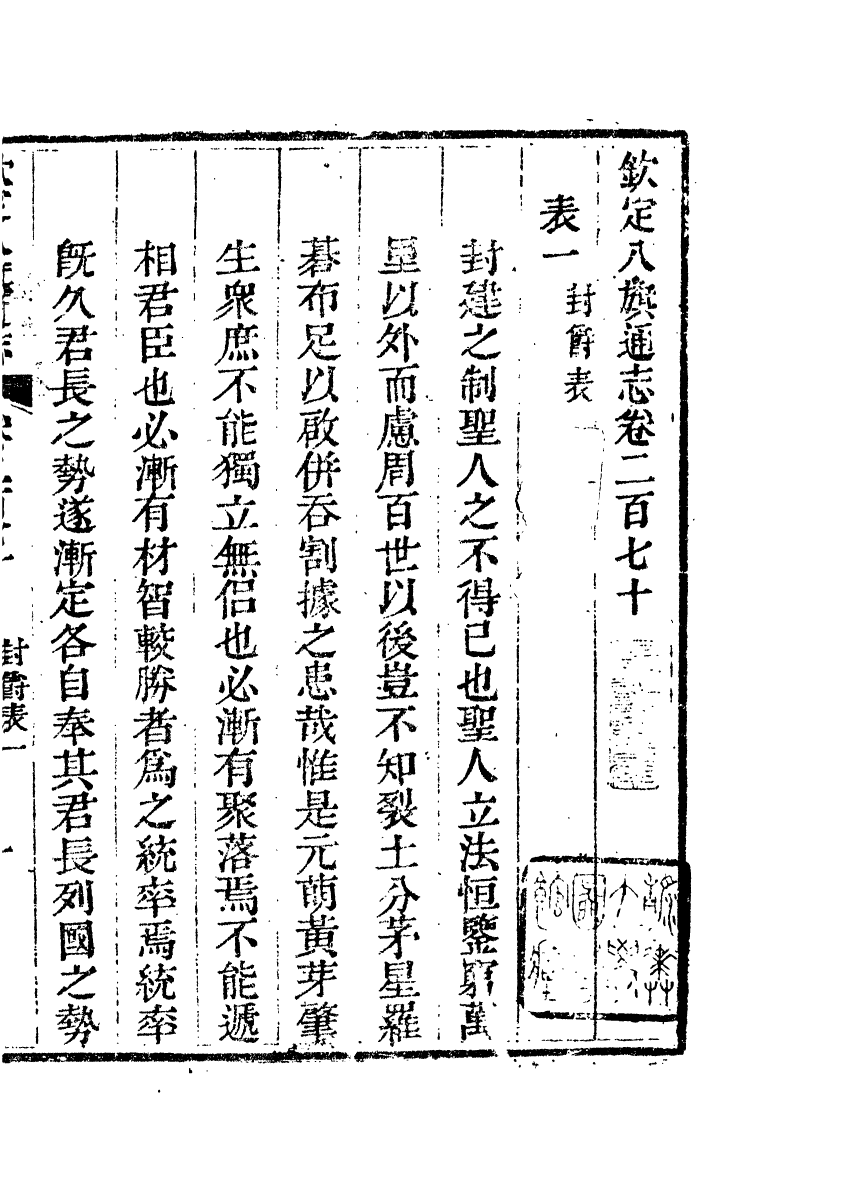 欽定八旗通志卷二百七十
表一 封爵表
封建之制聖人之不得已也聖人立法恒鑒窮萬
里以外而慮周百世以後豈不知裂土分茅星羅
碁布足以啟併吞割據之患哉惟是元萌黃芽肇
生衆庶不能獨立無侶也必漸有聚落焉不能遞
相君臣也必漸有材智較勝者爲之統率焉統率
旣久君長之勢遂漸定各自奉其君長列國之勢
封爵表一